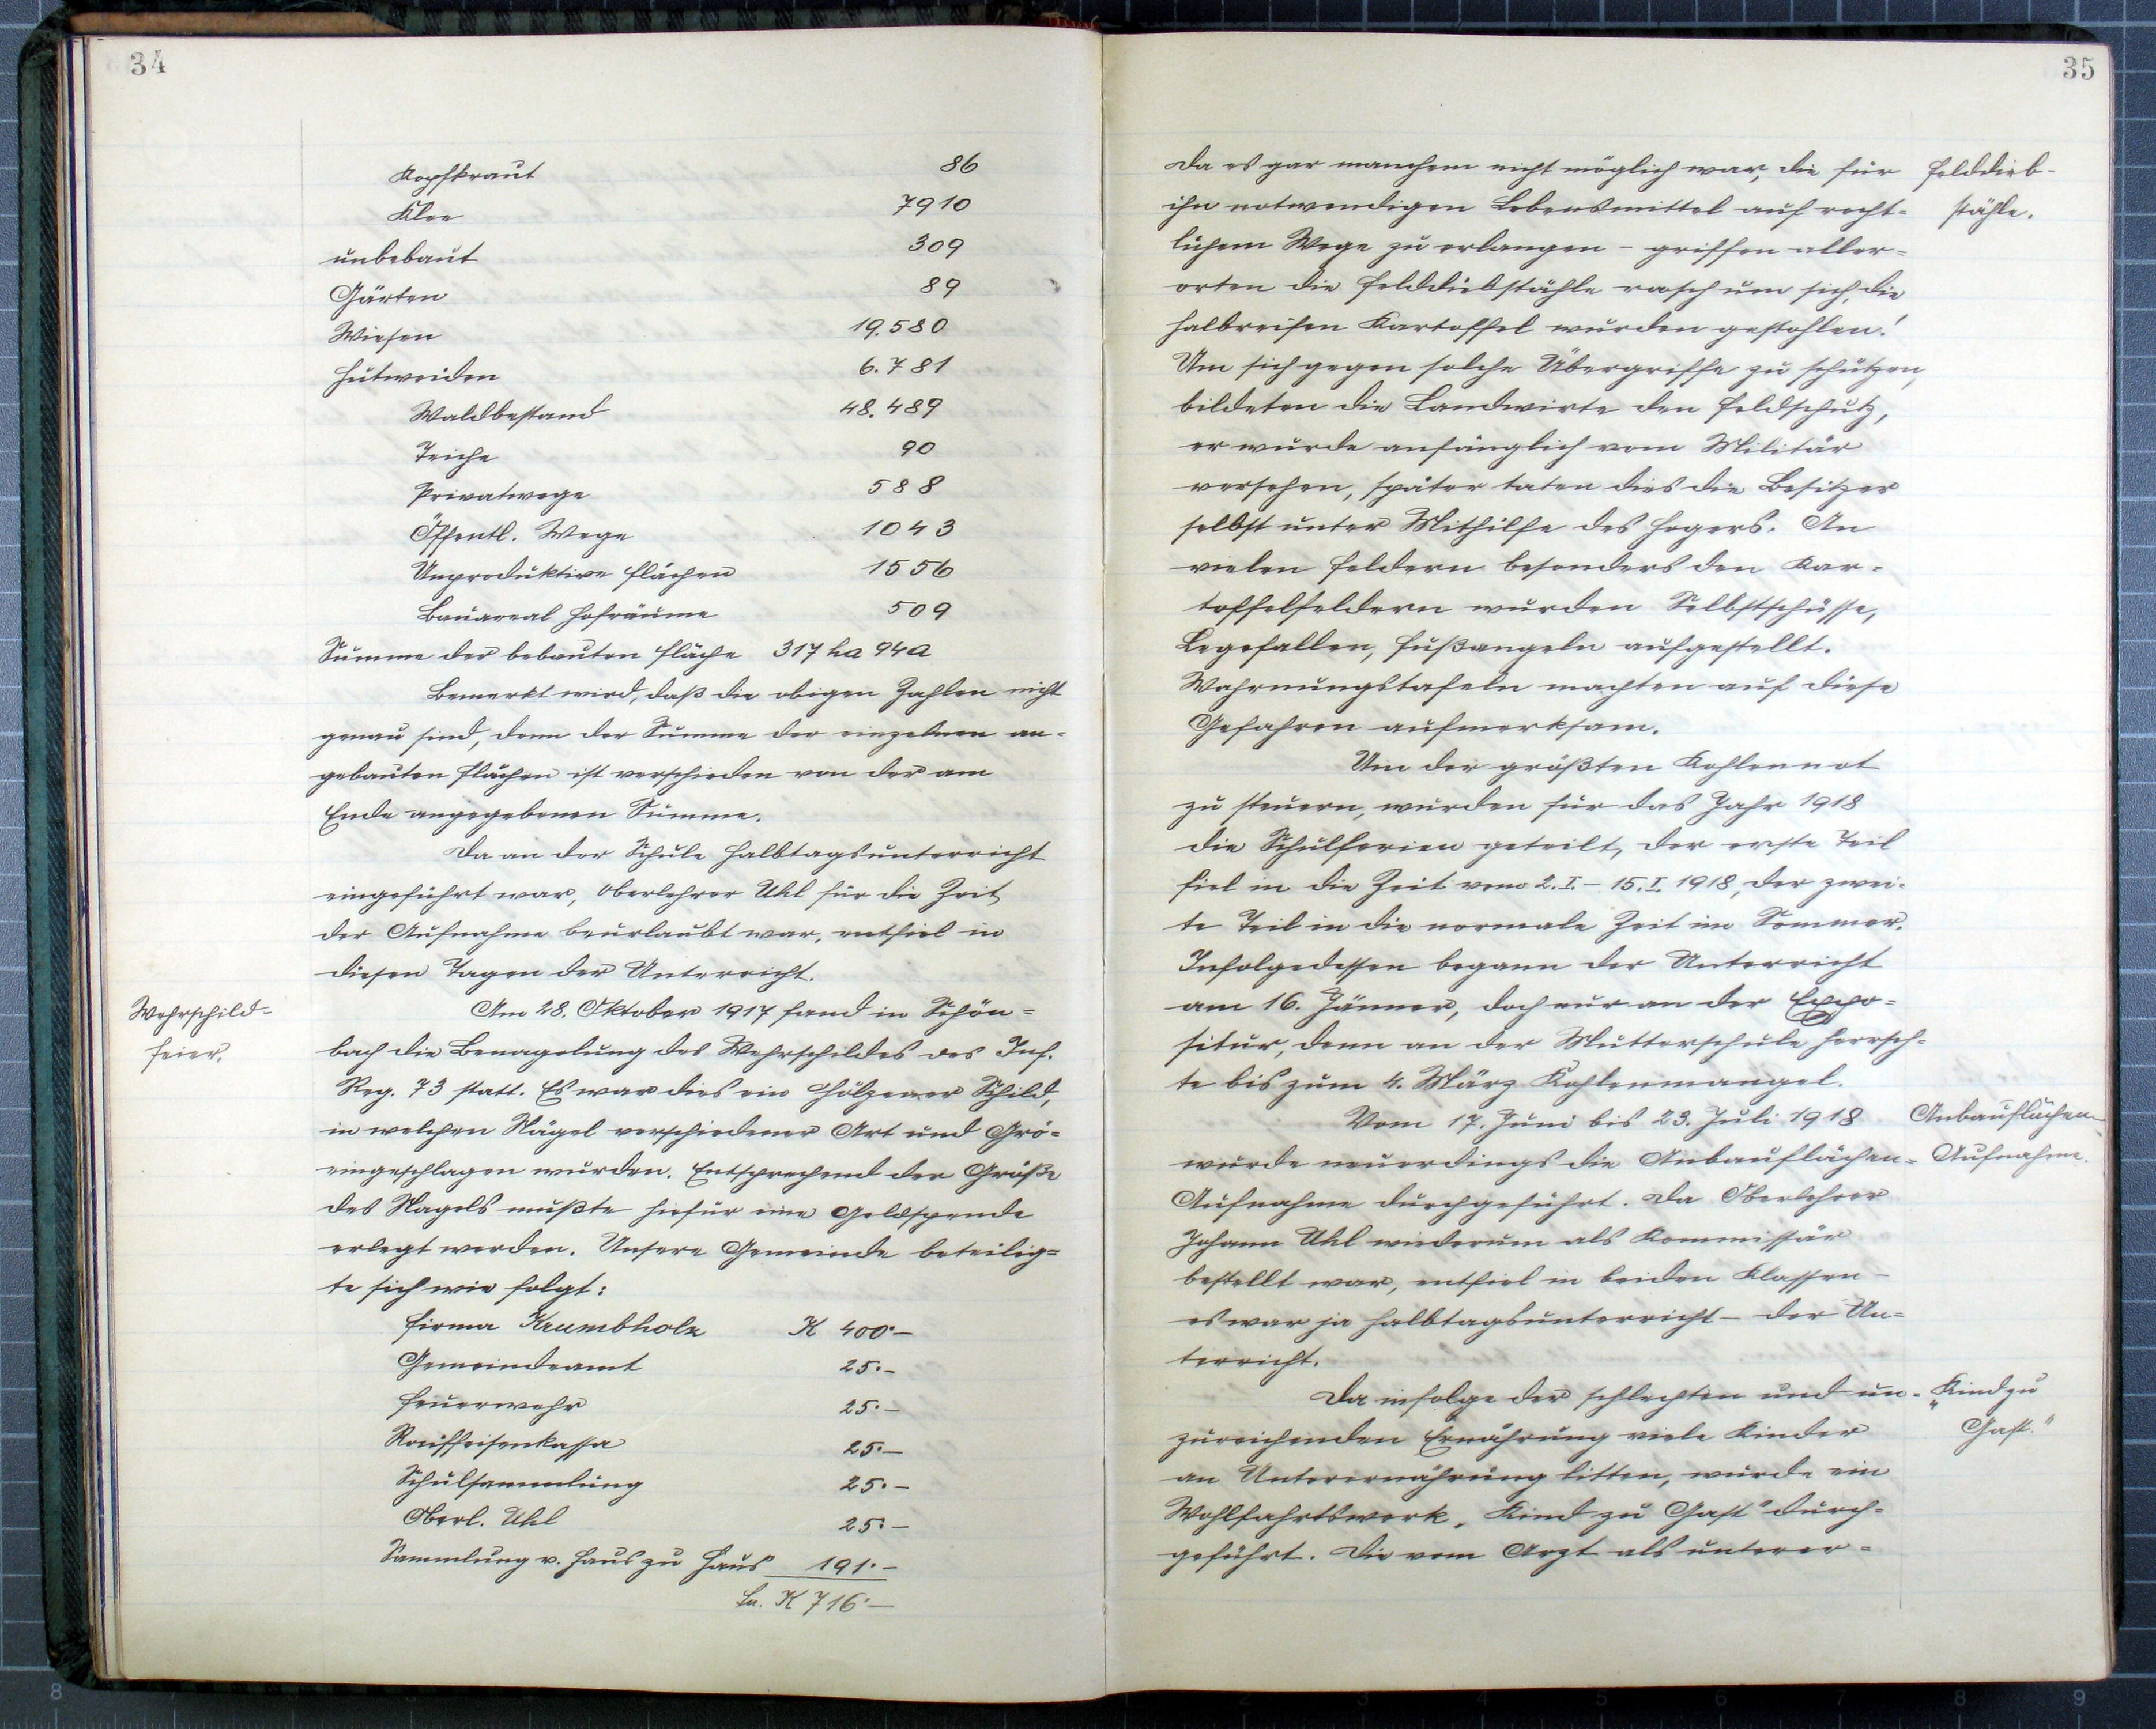 34
Kopfkraut 86
Klee 7910
unbebaut 309
Gärten 89
Wiesen 19.580
Hutweiden 6.781
Waldbestand 48.489
Teiche 90
Privatwege 588
Öffentl. Wege 1043
Unproduktive Flächen 1556
Bauareal Hofräume 509
Summe der bebauten Fläche 317 ha 94a
Bemerkt wird, daß die obigen Zahlen nicht
genau sind, denn der Summe der einzelnen an=
gebauten Flächen ist verschieden von der am
Ende angegebenen Summe.
Da an der Schule Halbtagsunterricht
eingeführt war, Oberlehrer Uhl für die Zeit
der Aufnahme beurlaubt war, entfiel in
diesen Tagen der Unterricht.
Wehrschild-
feier.
Am 28. Oktober 1917 fand in Schön=
bach die Benagelung des Wehrschildes des Inf.
Reg. 73 statt. Es war dies ein hölzener Schild,
in welchen Nägel verschiedener Art und Grö=
eingeschlagen wurden. Entsprechend der Größe
des Nagels mußte hiefür eine Geldspende
erlegt werden. Unsere Gemeinde beteilig=
te sich wie folgt:
Firma Krumbholz K 400·–
Gemeindeamt 25·–
Feuerwehr 25·–
Raiffeisenkassa 25·–
Schulsammlung 25·–
Oberl. Uhl 25·–
Sammlung v. Haus zu Haus 191·–
Sa. K 716·–
35
Da es gar manchem nicht möglich war, die für
ihn notwendigen Lebensmittel auf recht=
lichem Wege zu erlangen – griffen aller=
orten die Felddiebstähle rasch um sich, die
halbreifen Kartoffel wurden gestohlen!
Um sich gegen solche Übergriffe zu schützen,
bildeten die Landwirte den Feldschutz,
er wurde anfänglich vom Militär
versehen, später taten dies die Besitzer
selbst unter Mithilfe des Hegers. An
vielen Feldern besonders den Kar=
toffelfeldern wurden Selbstschüsse,
Legefallen, Fußangeln aufgestellt.
Wahrnungstafeln machten auf diese
Gefahren aufmerksam.
Felddieb-
stähle.
Um der größten Kohlennot
zu steuern, wurden für das Jahr 1918
die Schulferien geteilt, der erste Teil
fiel in die Zeit vom 2. I. – 15. I. 1918, der zwei=
te Teil in die normale Zeit im Sommer.
Infolgedessen begann der Unterricht
am 16. Jänner, doch nur an der Expo=
situr, denn an der Mutterschule herrsch=
te bis zum 4. März Kohlenmangel.
Vom 17. Juni bis 23. Juli 1918
wurde neuerdings die Anbauflächen=
Aufnahme durchgeführt. Da Oberlehrer
Johann Uhl wiederum als Kommissär
bestellt war, entfiel in beiden Klassen –
es war ja Halbtagsunterricht – der Un=
terricht.
Anbauflächen-
Aufnahme.
Da infolge der schlechten und un=
zureichenden Ernährung viele Kinder
an Unterernährung litten, wurde ein
Wohlfahrtswerk „Kind zu Gast" durch=
geführt. Die vom Arzt als unterer=
„Kind zu
Gast."
8
1 2 3 4 5 6 7 8 9